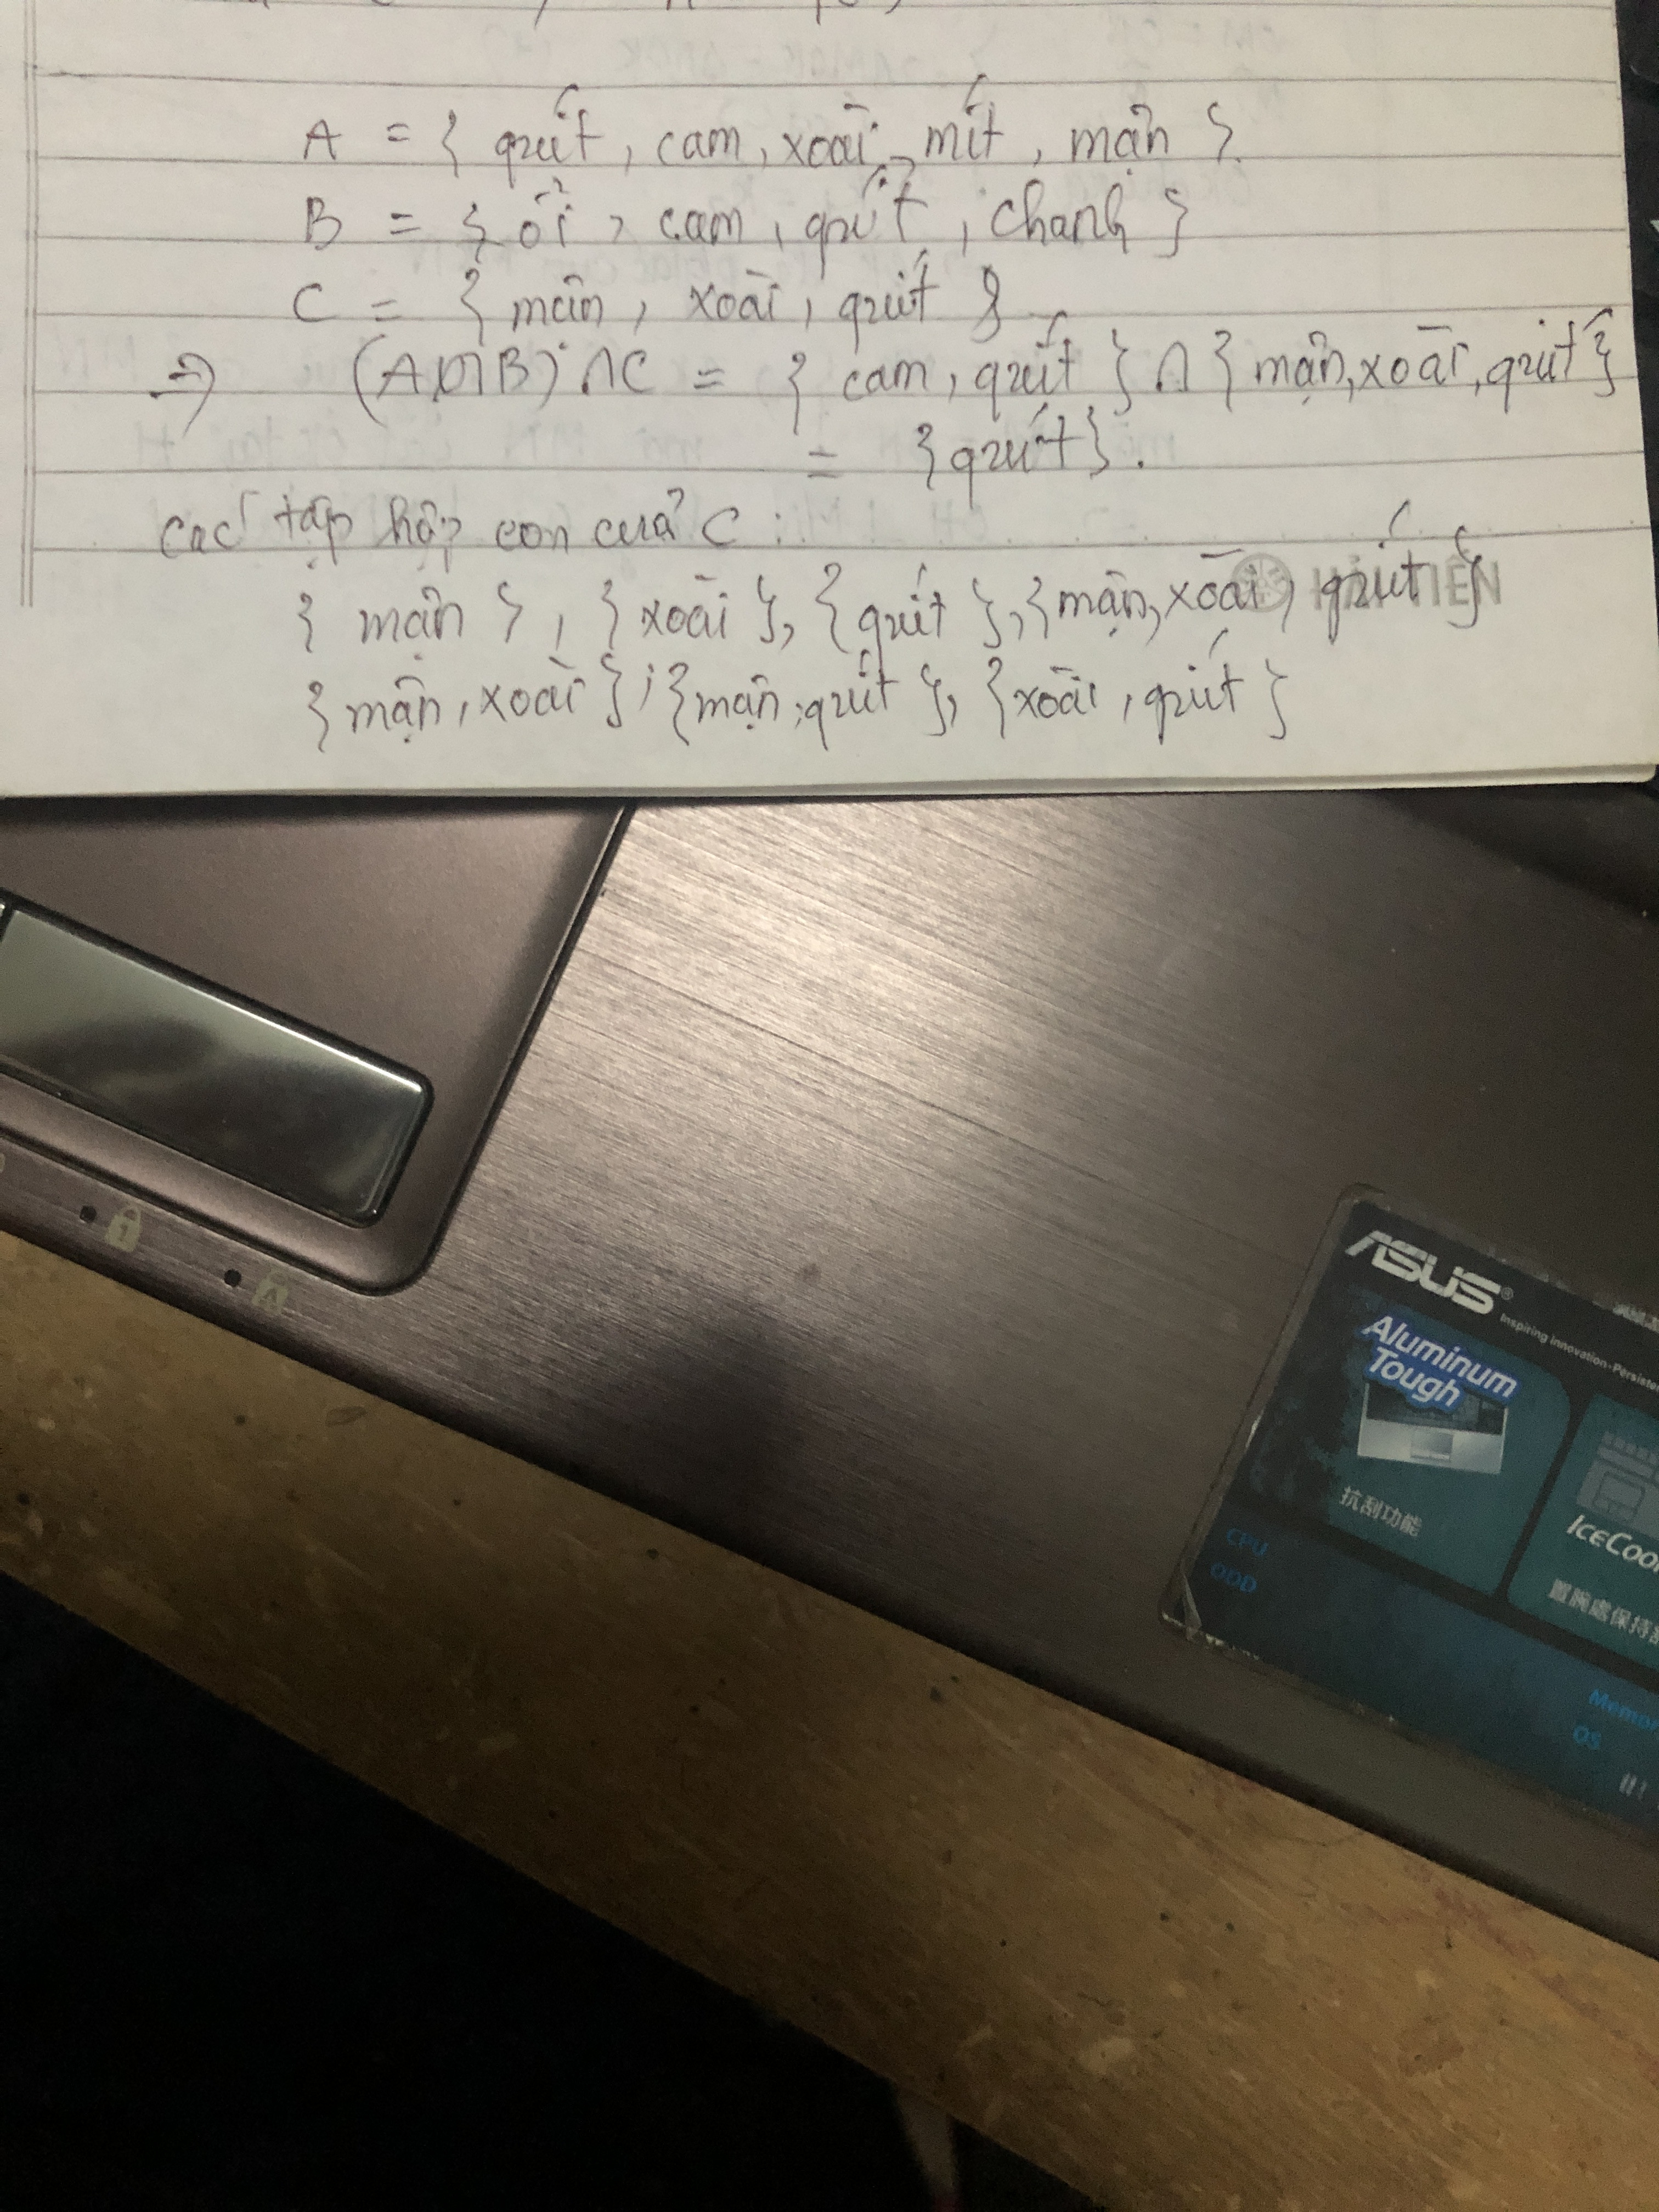 A = { quýt, cam, xoài, mít, mận }.
B = { ổi, cam, quýt, chanh }
C = { mận, xoài, quýt }
=> (A∩B)∩C = { cam, quýt } ∩ { mận, xoài, quýt }
= { quýt }.
các tập hợp con của C :
{ mận }, { xoài }, { quýt }, { mận, xoài, quýt }
HẢI TIẾN
{ mận, xoài }; { mận, quýt }, { xoài, quýt }
ASUS®
Inspiring Innovation · Persistent
Aluminum
Tough
抗刮功能
CPU
ODD
OS